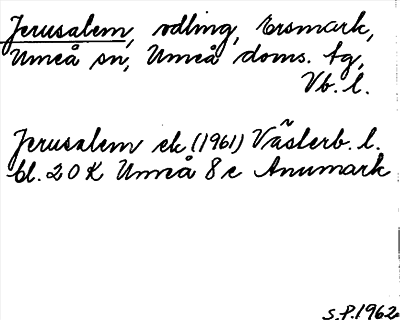 Jerusalem, odling, Ersmark,
Umeå sn, Umeå doms. tg,
Vb. l.
Jerusalem ek (1961) Västerb. l.
bl. 20 K Umeå 8 e Anumark
S.P. 1962